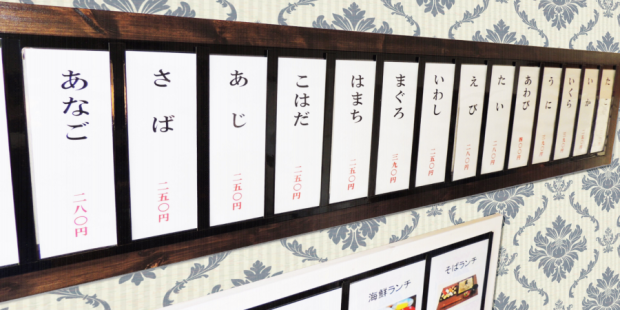 あなご
二八〇円
さば
二五〇円
あじ
二五〇円
こはだ
二五〇円
はまち
二五〇円
まぐろ
三九〇円
いわし
二五〇円
えび
二八〇円
たい
二八〇円
あわび
うに
いくら
いか
たこ
海鮮ランチ
そばランチ